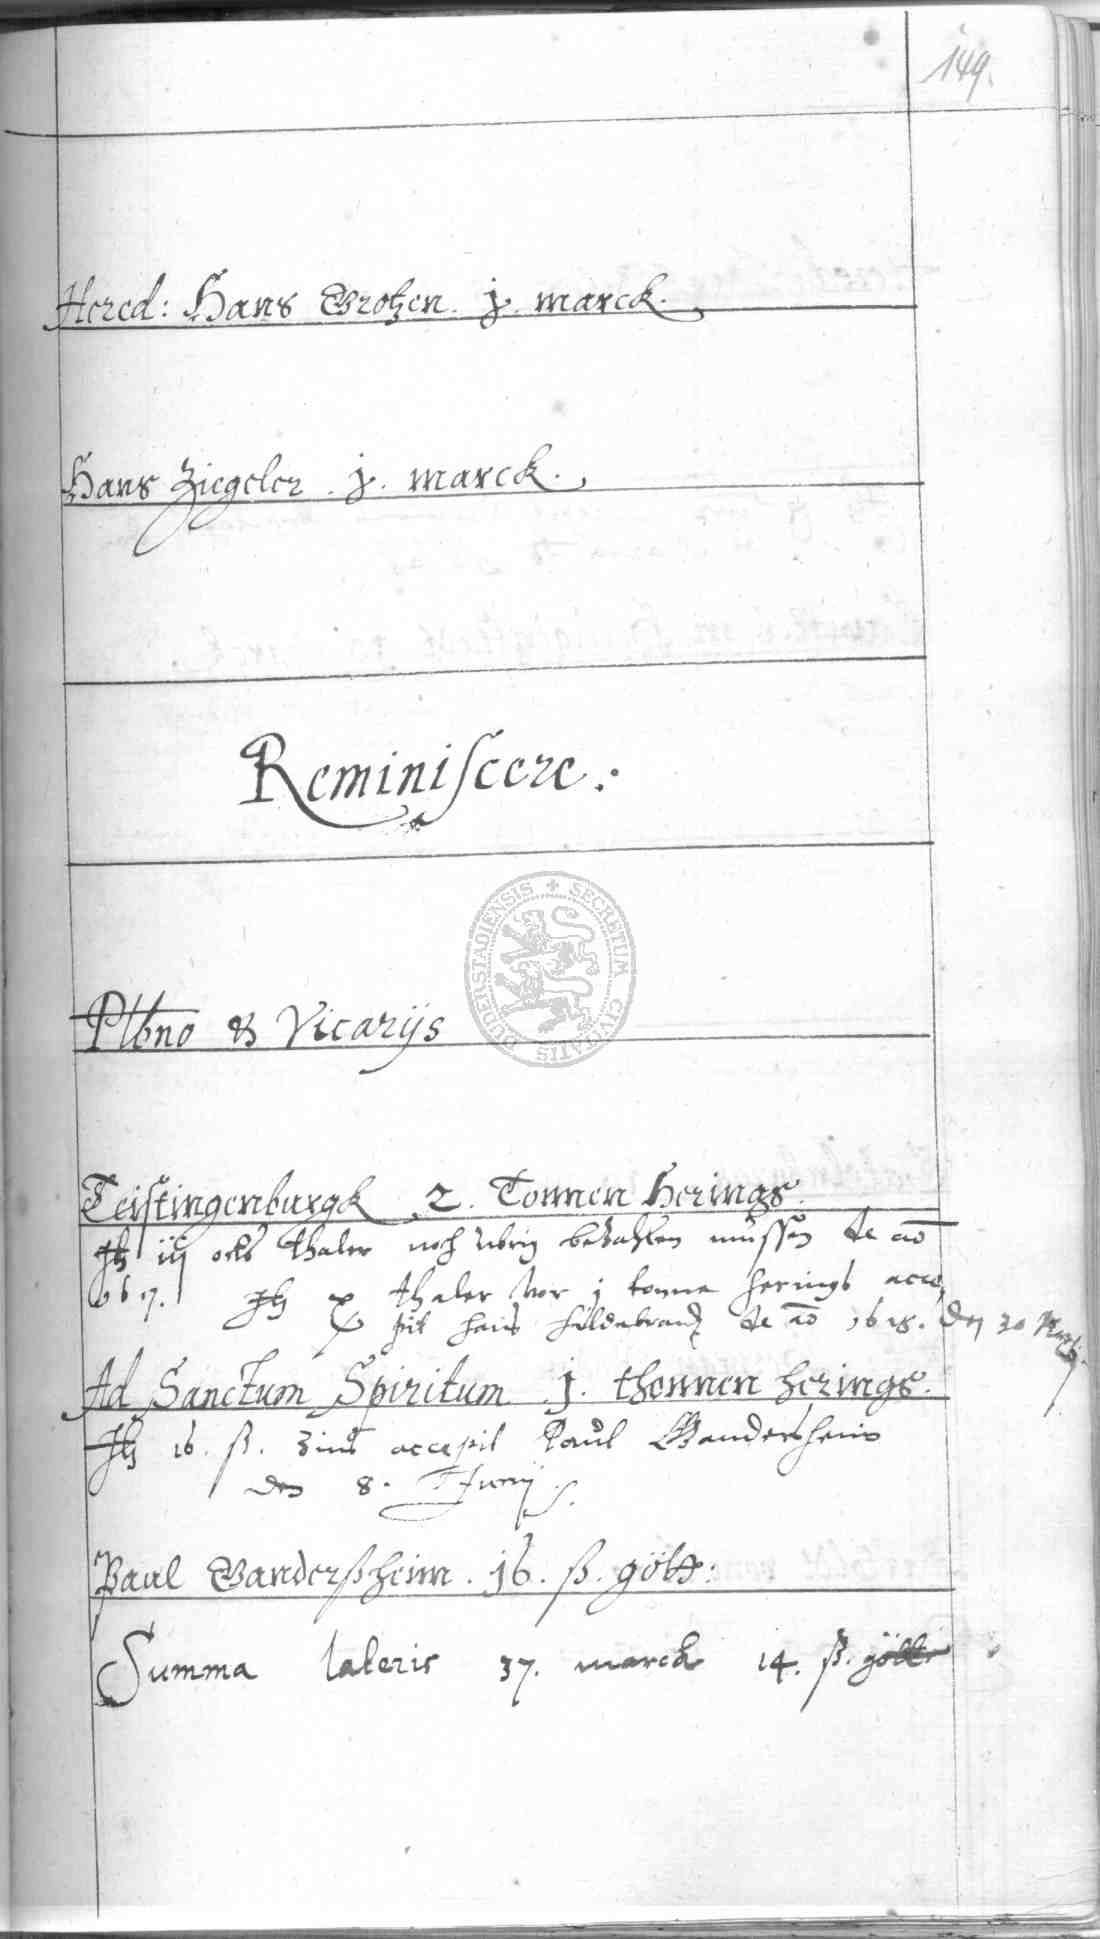 149.
Hered: Hans Brotzen. j. marck.
Hans Ziegeler. j. marck.
Reminiscere.
DUDERSTADIENSIS + SECRETUM CIVITATIS
Plbno & Vicarijs
Teistingenburgk 2. Tonnen Herings.
iij orts thaler noch ubrig bezahlen mussen de ao
1617. thaler vor j tonne herings acce
pit Hans Hildebrandt de ao 1618. den 20 Martij
Ad Sanctum Spiritum j. thonnen herings.
16. ß. Zins accepit Paul Gandersheim
den 8. Junij
Paul Gandersheim. 16. ß. gött:
Summa lateris 37. marck 14. ß. gött